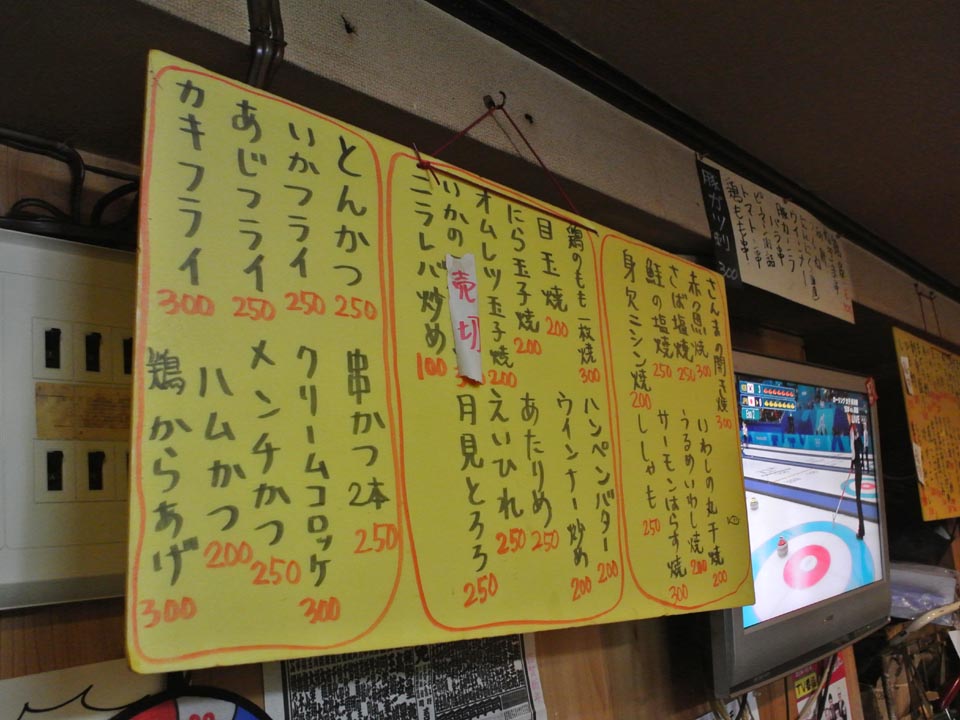 さんまの開き焼 300
赤の魚焼 300
さば塩焼 250
鮭の塩焼 250
身欠ニシン焼 200
いわしの丸干焼 200
うるめいわし焼 200
サーモンはらす焼 300
ししゃも 250
鶏のもも一枚焼 300
目玉焼 200
にら玉子焼 200
オムレツ玉子焼 200
いかの
売切
ニラレバ炒め 100
ハンペンバター 200
ウインナー炒め 200
あたりめ 250
えいひれ 250
月見とろろ 250
とんかつ 250
いかフライ 250
あじフライ 250
カキフライ 300
串かつ2本 250
クリームコロッケ 300
メンチかつ 250
ハムかつ 200
鶏からあげ 300
トマト串
鶏もも串
300